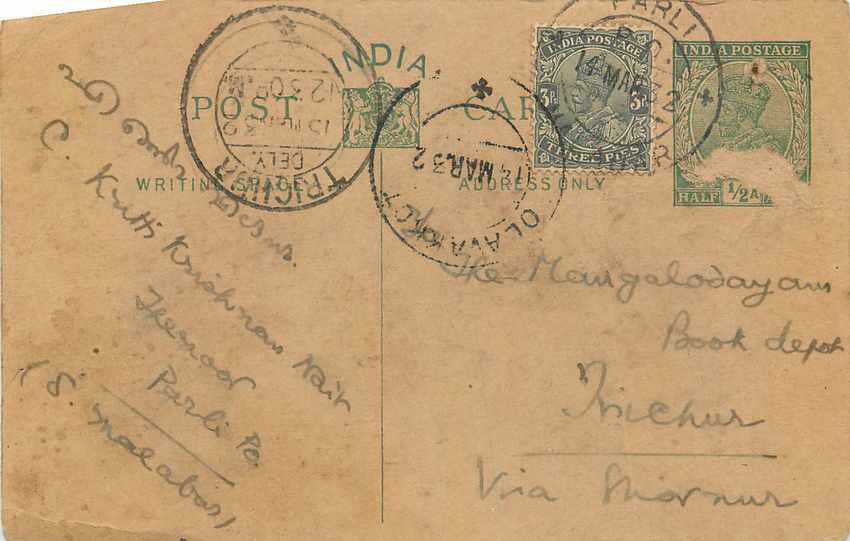 INDIA
POST CARD
WRITING SPACE
ADDRESS ONLY
INDIA POSTAGE
3P 3P
THREE PIES
INDIA POSTAGE
HALF 1/2A
PARLI
14 MAR
TRICHUR
DELY.
12.30 P.M
13 MAR. 32
C. Kutti Krishnan Nair
Thenoor
Parli Po.
(S. Malabar)
The Mangalodayam
Book depot
Trichur
Via Shornur